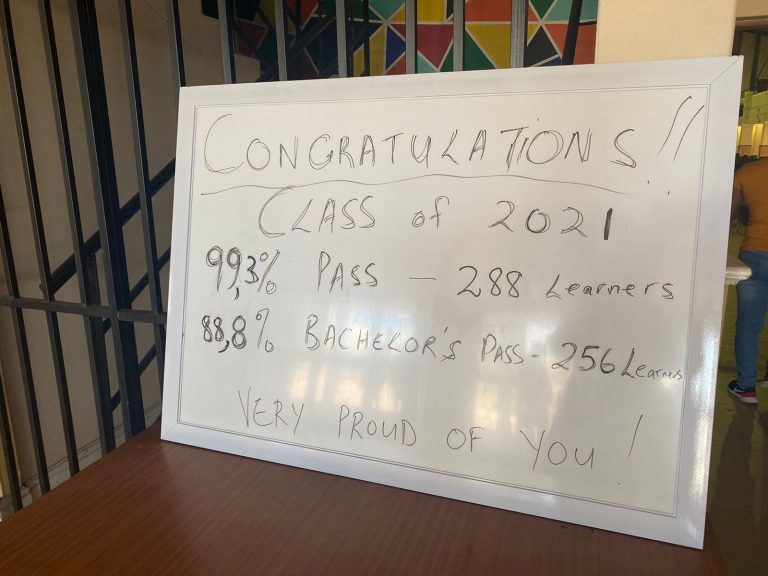 CONGRATULATIONS!!
CLASS of 2021
99,3% PASS - 288 Learners
88,8% BACHELOR'S PASS - 256 Learners
VERY PROUD OF YOU!